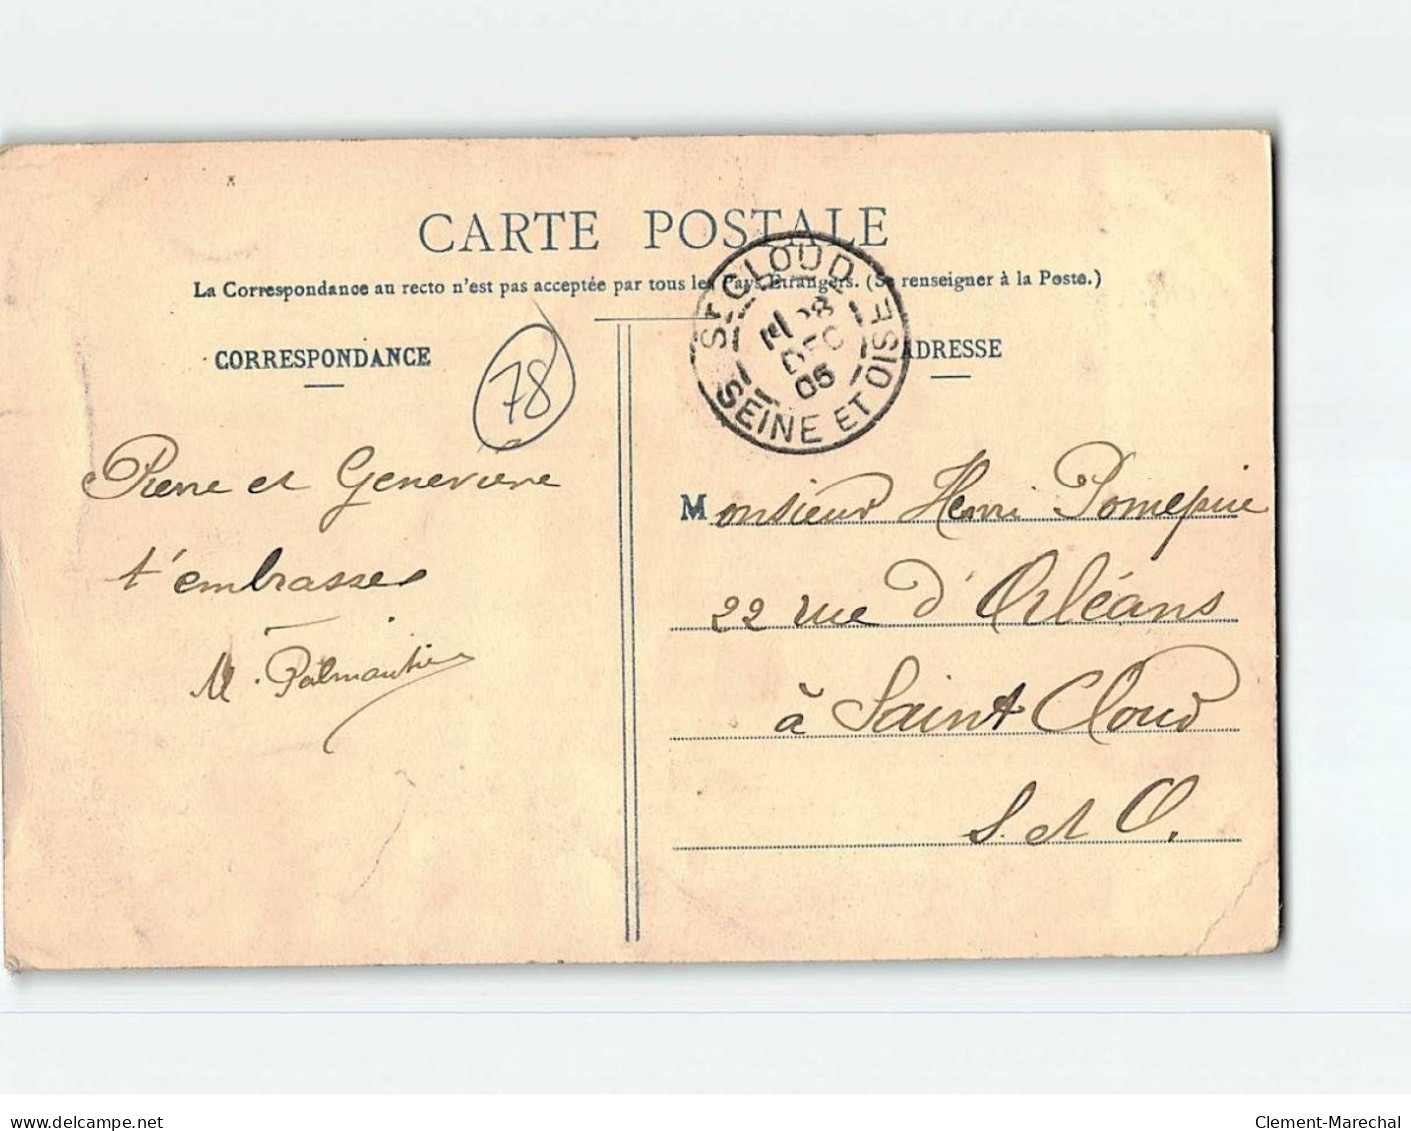 CARTE POSTALE
La Correspondance au recto n'est pas acceptée par tous les Pays Etrangers. (Se renseigner à la Poste.)
CORRESPONDANCE
ADRESSE
78
ST CLOUD
28
DEC
05
SEINE ET OISE
Pierre et Geneviève
t'embrasses
M. Palmantier
Monsieur Henri Pomepuie
22 rue d'Orléans
à Saint Cloud
S. et O.
www.delcampe.net
Clement-Marechal